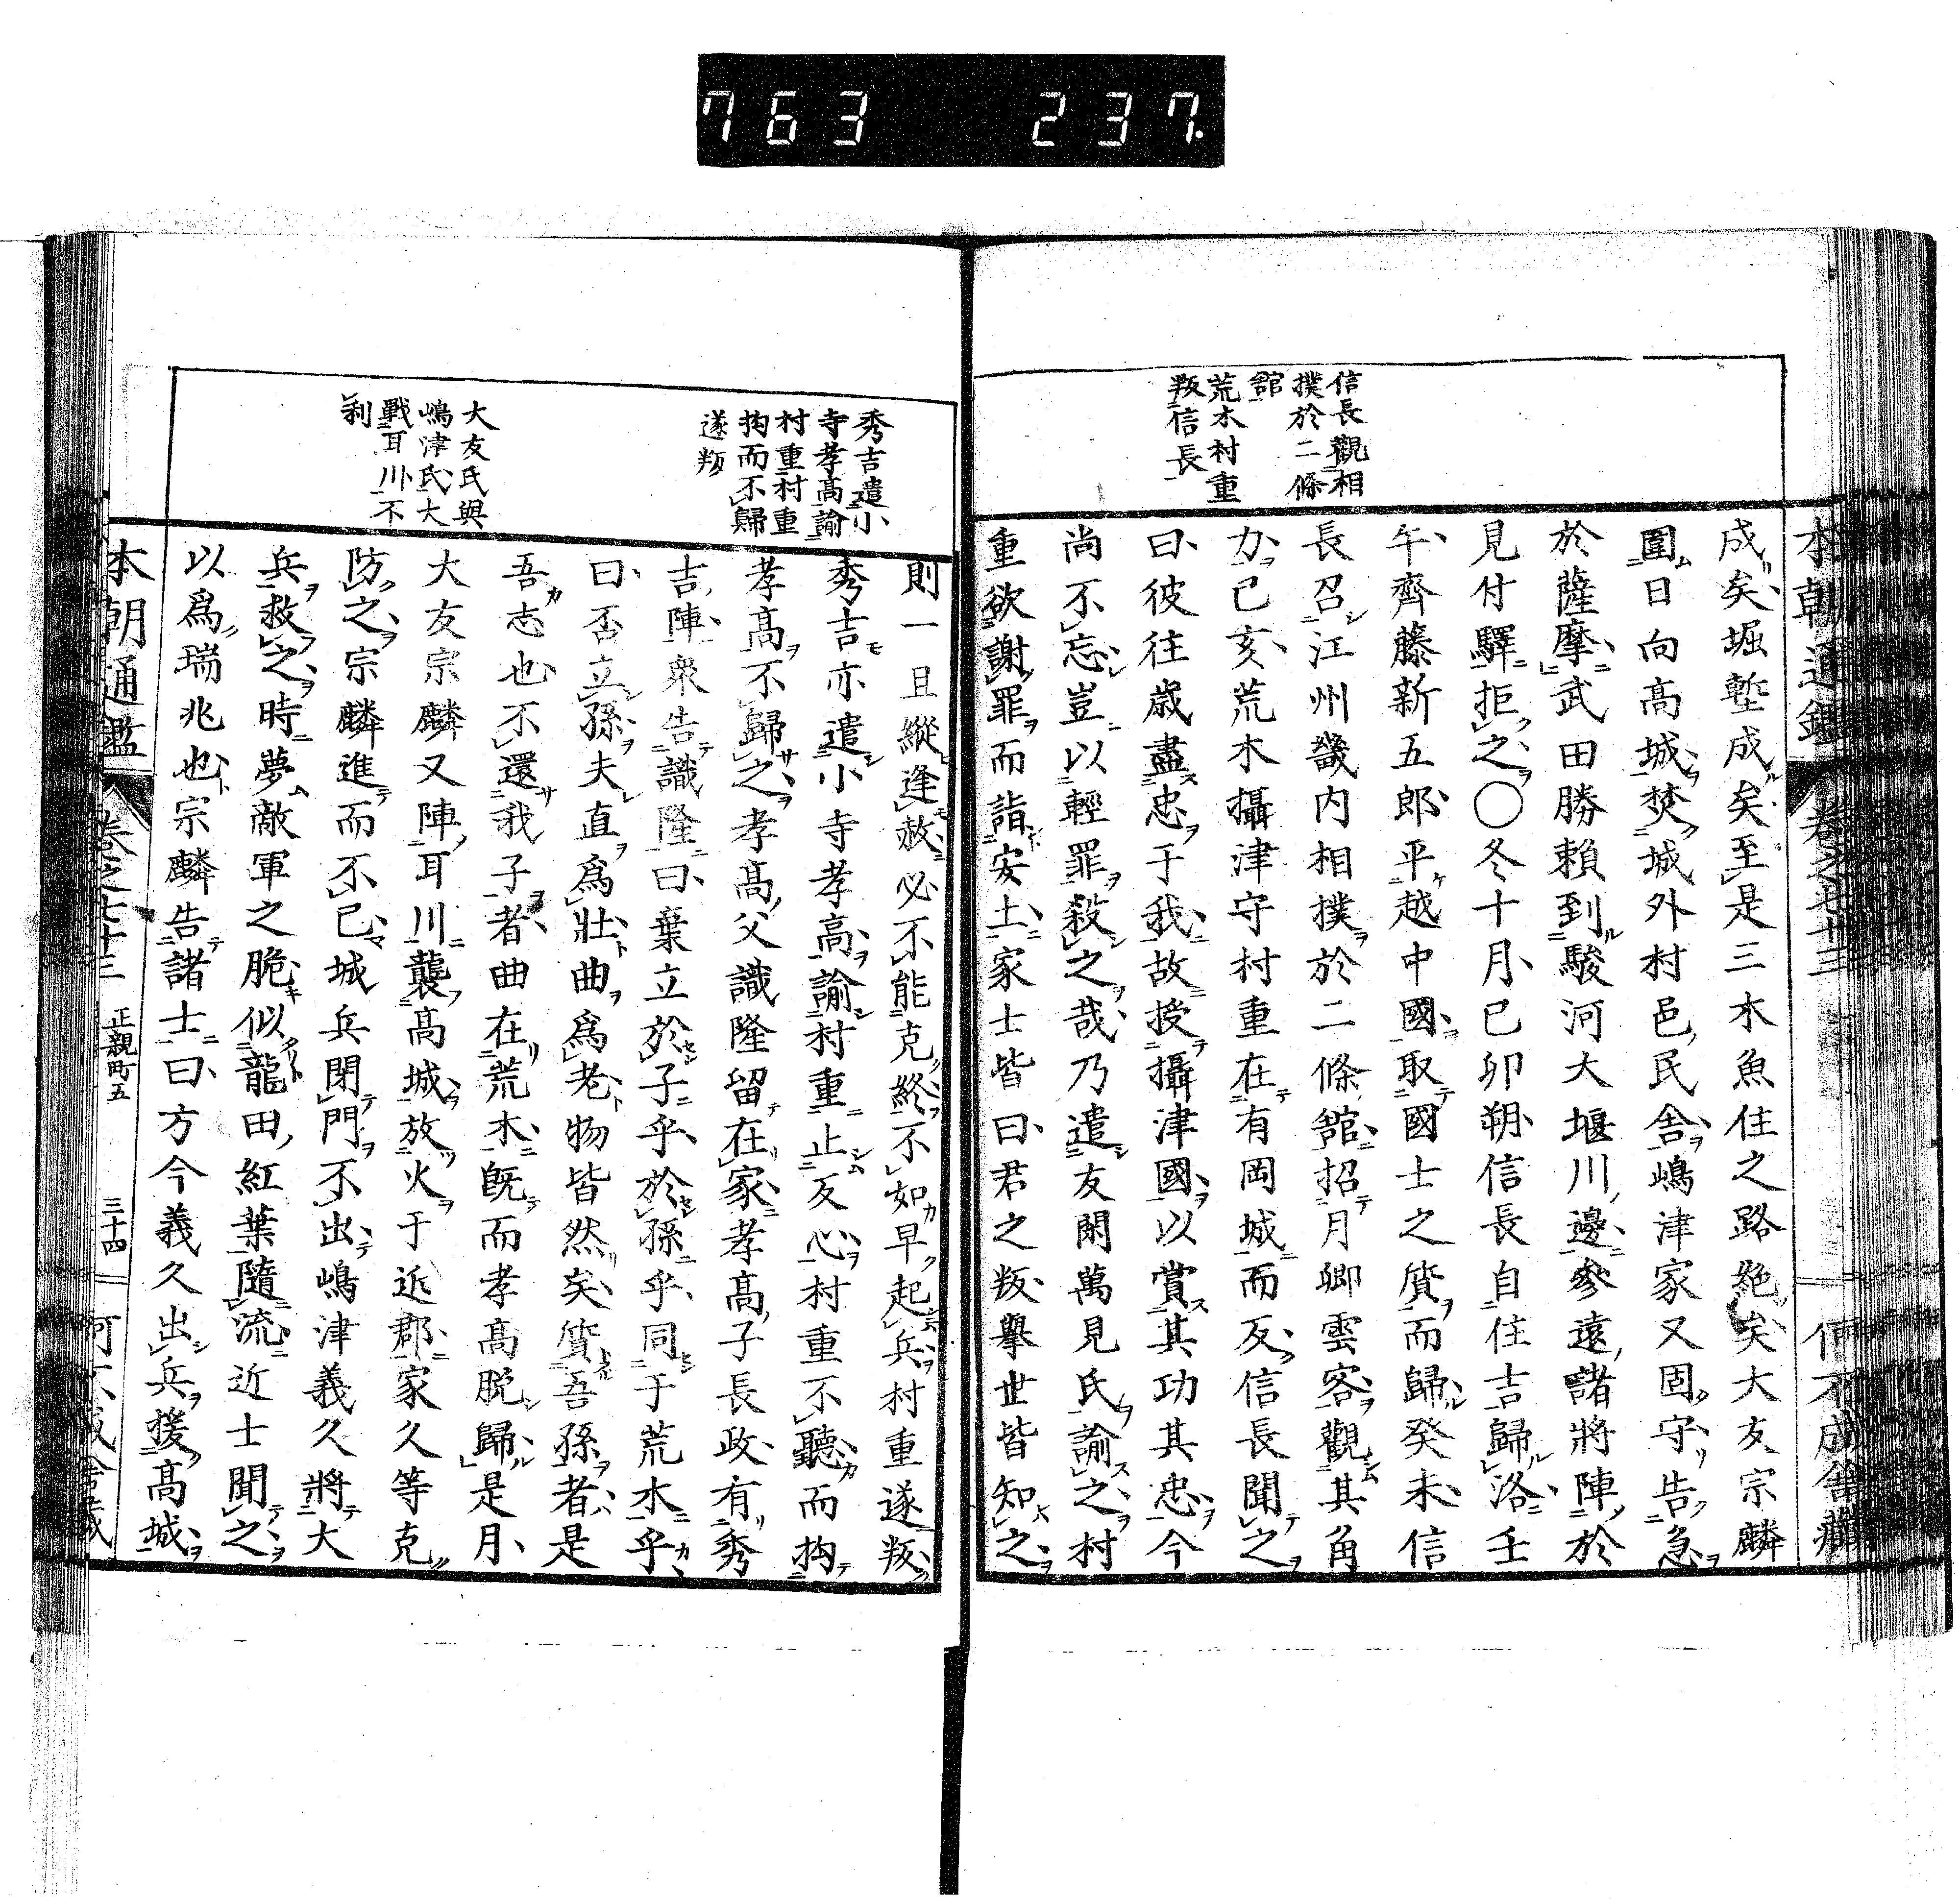 763 237
本朝通鑑 卷之七十三
信長觀相
撲於二條
舘
荒木村重
叛信長
成矣堀塹成矣至是三木魚住之路絶矣大友宗麟
圍日向高城焚城外村邑民舎嶋津家又固守告急
於薩摩武田勝頼到駿河大堰川邊參遠諸將陣於
見付驛拒之〇冬十月已卯朔信長自住吉歸洛壬
午齊藤新五郎平越中國取國士之質而歸癸未信
長召江州畿内相撲於二條舘招月卿雲客觀其角
力已亥荒木攝津守村重在有岡城而反信長聞之
曰彼往歳盡忠于我故授攝津國以賞其功其忠今
尚不忘豈以輕罪殺之哉乃遣友閑萬見氏諭之村
重欲謝罪而詣安土家士皆曰君之叛擧世皆知之
秀吉遣小
寺孝高諭
村重村重
拘而不歸
遂叛
大友氏與
嶋津氏大
戰耳川不
利
則一旦縱逢赦必不能克終不如早起兵村重遂叛
秀吉亦遣小寺孝高諭村重止反心村重不聽而拘
孝高不歸之孝高父識隆留在家孝高子長政有秀
吉陣衆告識隆曰棄立於子乎於孫乎同于荒木乎
曰否立孫夫直爲壯曲爲老物皆然矣質吾孫者是
吾志也不還我子者曲在荒木既而孝高脱歸是月
大友宗麟又陣耳川襲高城放火于近郡家久等克
防之宗麟進而不已城兵閉門不出嶋津義久將大
兵救之時夢敵軍之脆似龍田紅葉隨流近士聞之
以爲瑞兆也宗麟告諸士曰方今義久出兵援高城
本朝通鑑 卷之七十三 正親町五 三十四